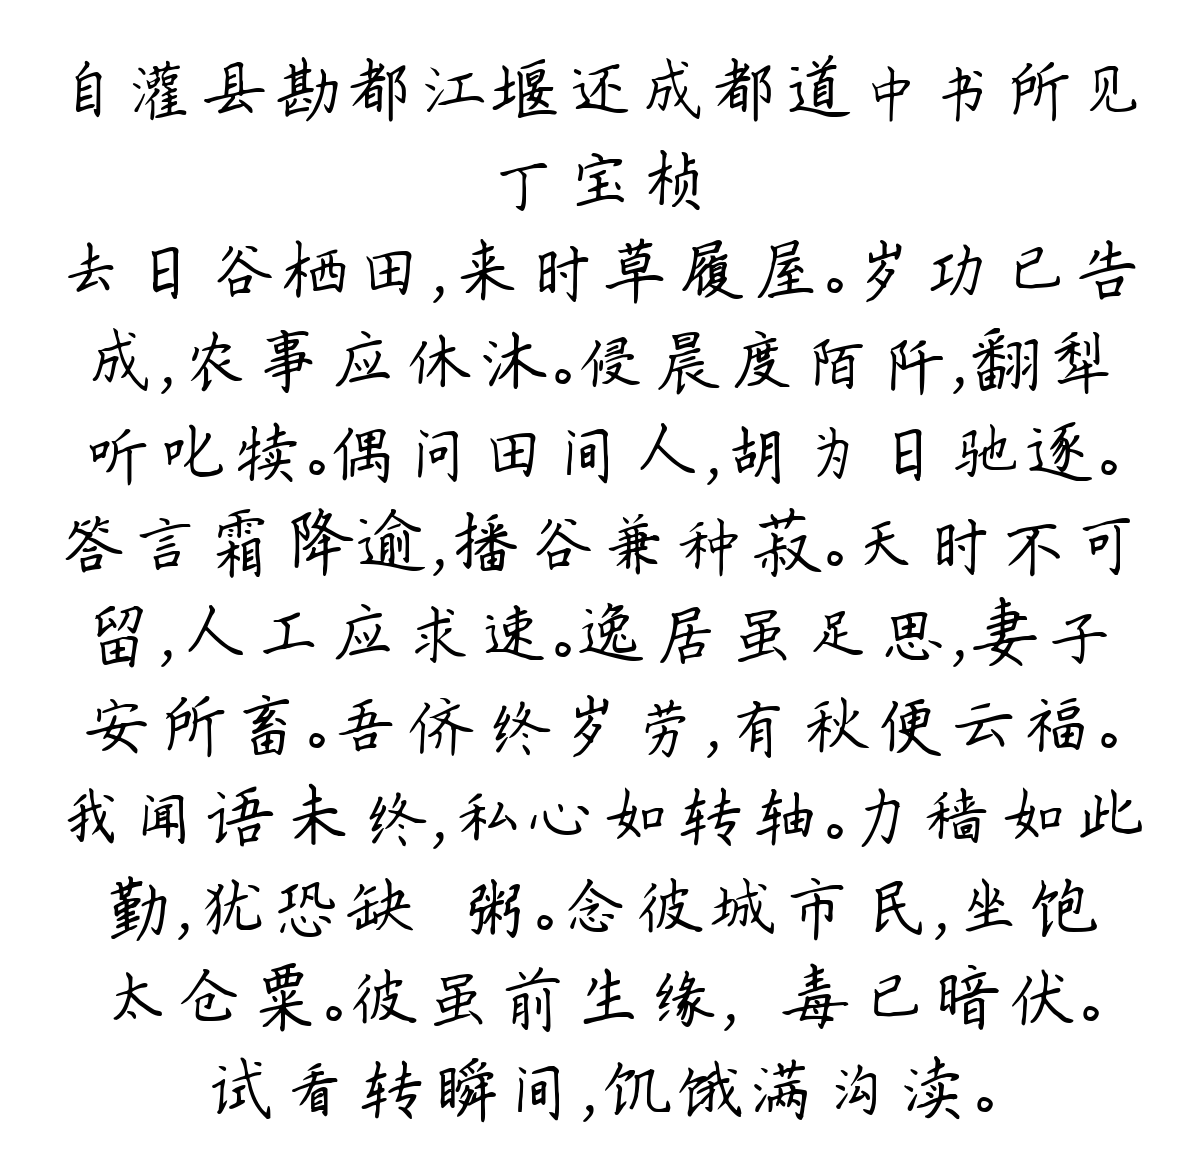 自灌县勘都江堰还成都道中书所见
丁宝桢
去日谷栖田,来时草履屋。岁功已告
成,农事应休沐。侵晨度陌阡,翻犁
听叱犊。偶问田间人,胡为日驰逐。
答言霜降逾,播谷兼种菽。天时不可
留,人工应求速。逸居虽足思,妻子
安所畜。吾侪终岁劳,有秋便云福。
我闻语未终,私心如转轴。力穑如此
勤,犹恐缺 粥。念彼城市民,坐饱
太仓粟。彼虽前生缘, 毒已暗伏。
试看转瞬间,饥饿满沟渎。